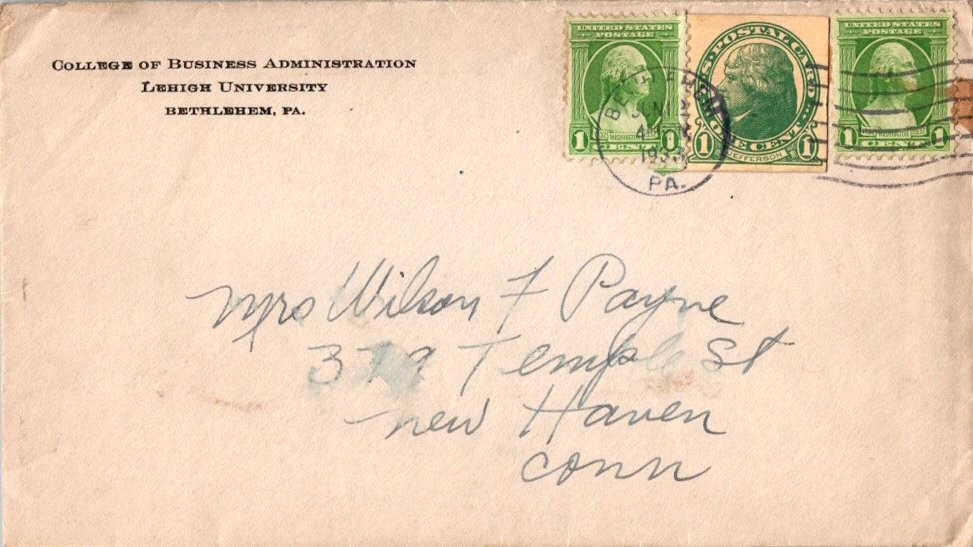 COLLEGE OF BUSINESS ADMINISTRATION
LEHIGH UNIVERSITY
BETHLEHEM, PA.
UNITED STATES
POSTAGE
1 WASHINGTON 1
CENT
U.S. POSTAL CARD
1 ONE CENT 1
JEFFERSON
UNITED STATES
POSTAGE
1 WASHINGTON 1
CENT
BETHLEHEM
1933
PA.
Mrs Wilson F Payne
379 Temple St
New Haven
Conn